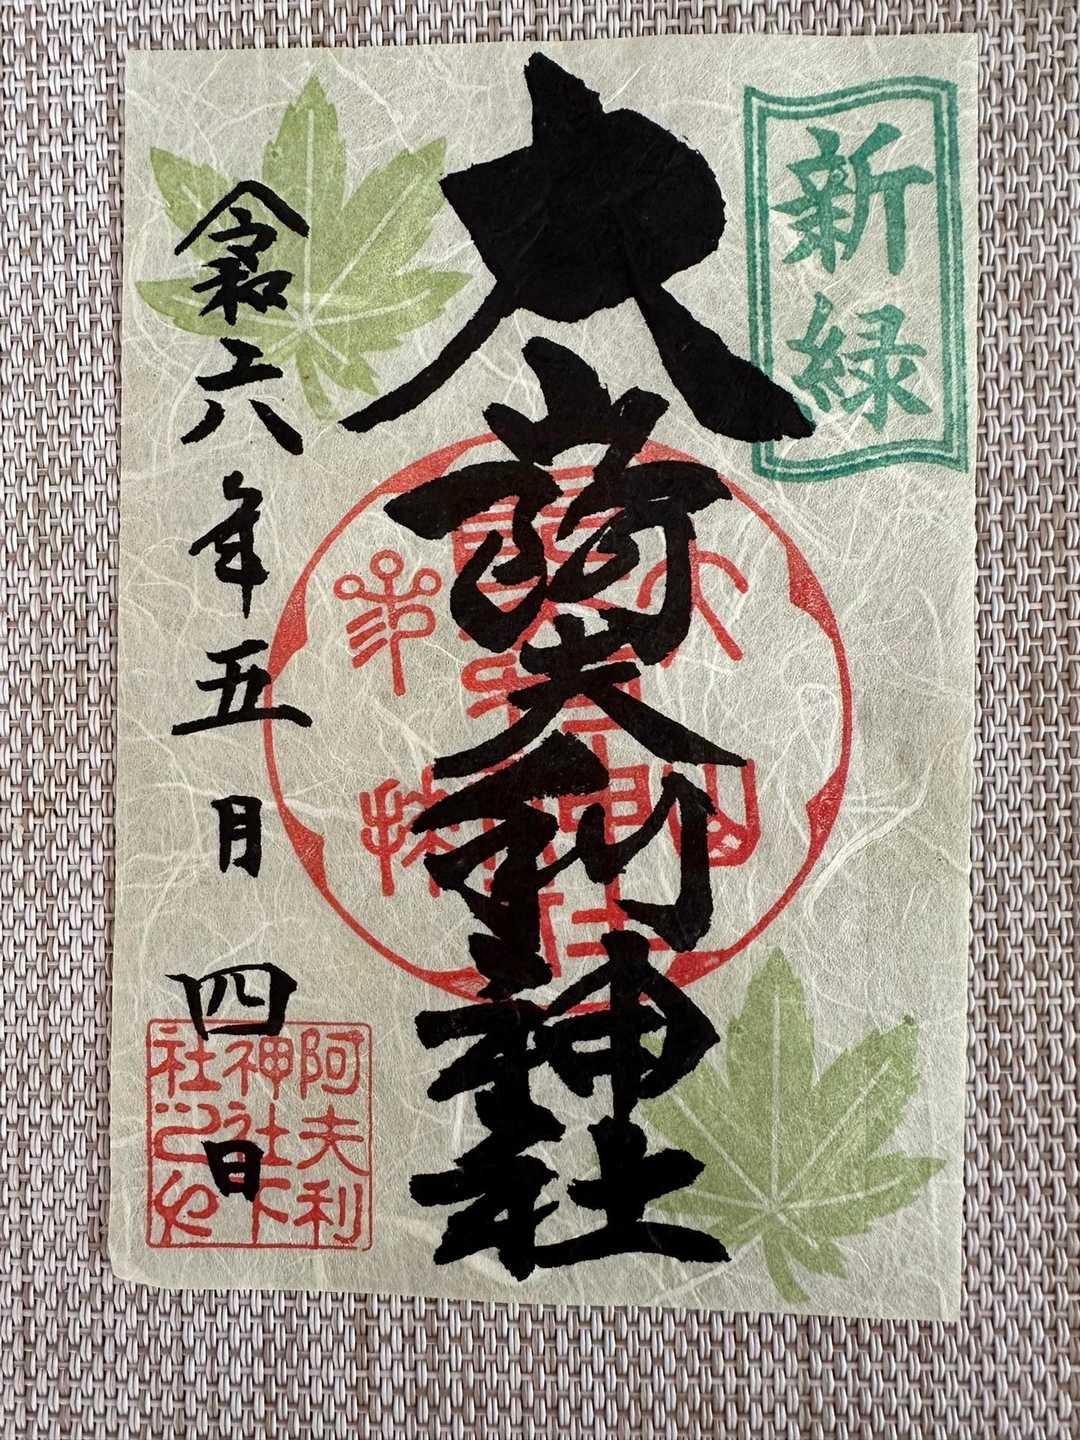 新緑
大山阿夫利神社
令和六年五月四日
阿夫利
神社下
社之印